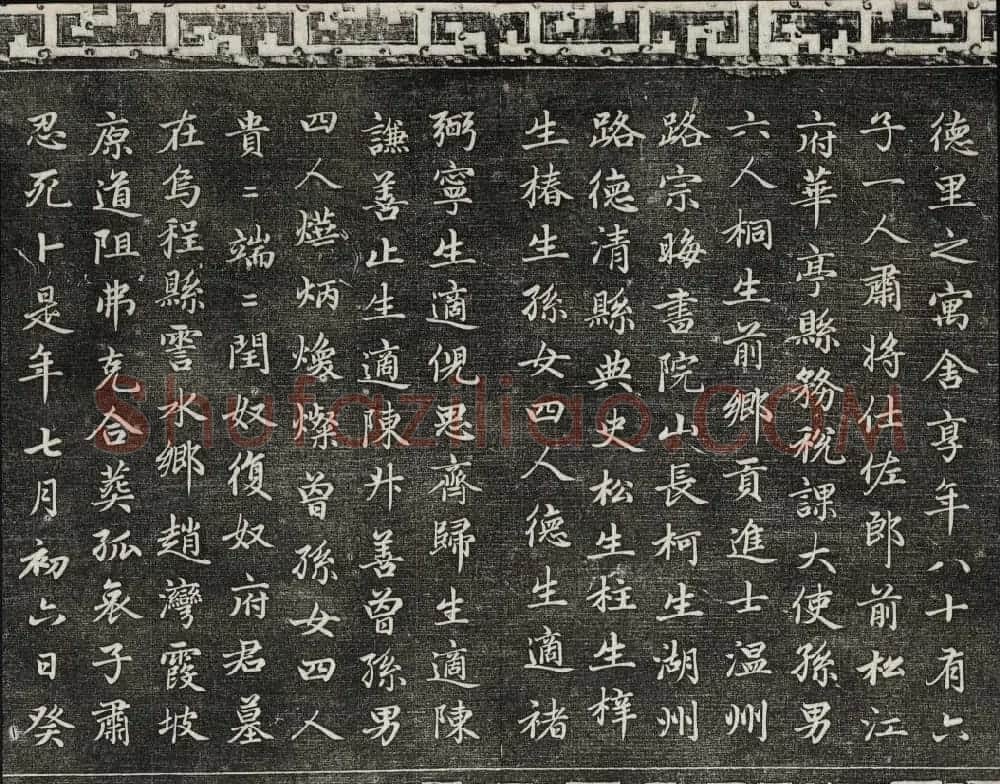 德里之寓舍享年八十有六
子一人肅將仕佐郎前松江
府華亭縣務稅課大使孫男
六人桐生前鄉貢進士温州
路宗晦書院山長柯生湖州
路德清縣典史松生柱生梓
生椿生孫女四人德生適褚
弼寧生適倪思齊歸生適陳
謙善止生適陳升善曾孫男
四人爃炳煥燦曾孫女四人
貴〻端〻閏奴復奴府君墓
在烏程縣霅水鄉趙灣霞坡
原道阻弗克合葬孤哀子肅
忍死卜是年七月初六日癸
Shufaziliao.COM